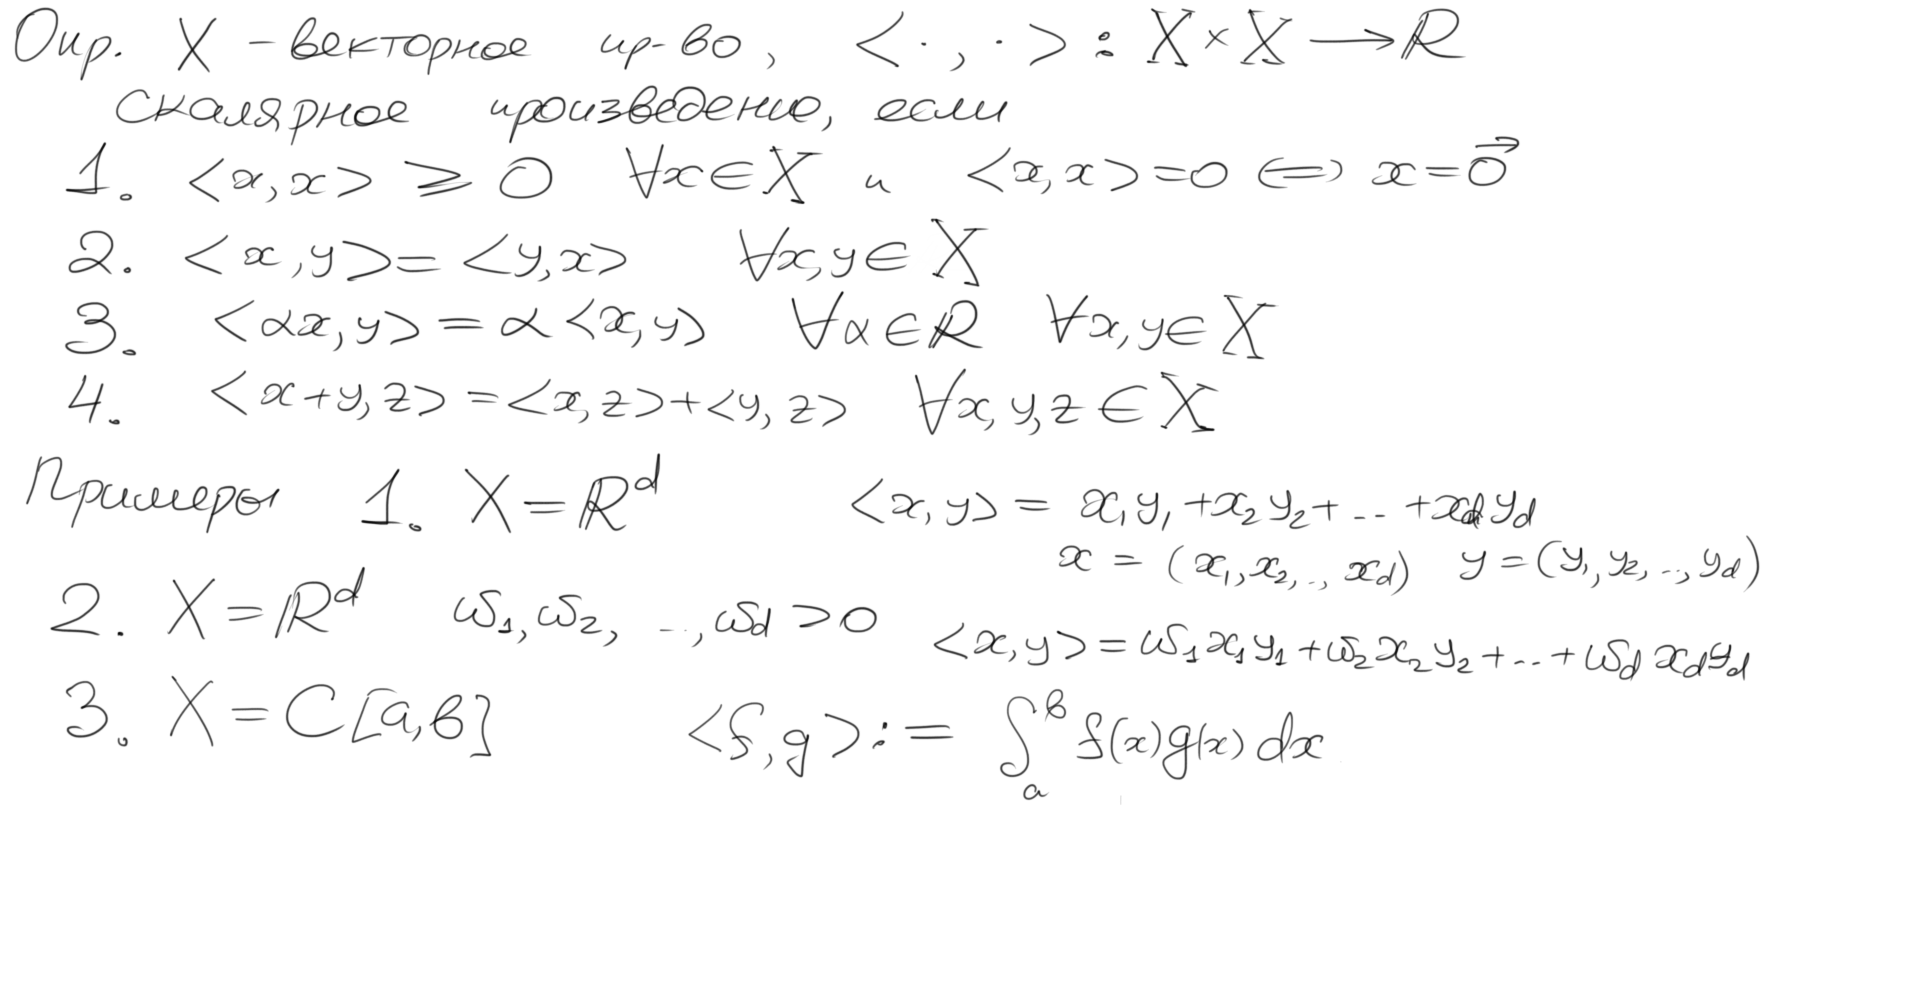 Опр. X - векторное пр-во, <·,·> : X × X → ℝ
скалярное произведение, если
1. <x,x> ≥ 0 ∀x∈X и <x,x>=0 ⟺ x=0⃗
2. <x,y>=<y,x> ∀x,y∈X
3. <αx,y>=α<x,y> ∀α∈ℝ ∀x,y∈X
4. <x+y,z>=<x,z>+<y,z> ∀x,y,z∈X
Примеры 1. X=ℝᵈ <x,y> = x₁y₁+x₂y₂+...+x_d y_d
x = (x₁,x₂,..,x_d) y=(y₁,y₂,..,y_d)
2. X=ℝᵈ ω₁,ω₂, ..,ω_d >0 <x,y>=ω₁x₁y₁+ω₂x₂y₂+..+ω_d x_d y_d
3. X=C[a,b] <f,g>:= ∫ₐᵇ f(x)g(x) dx